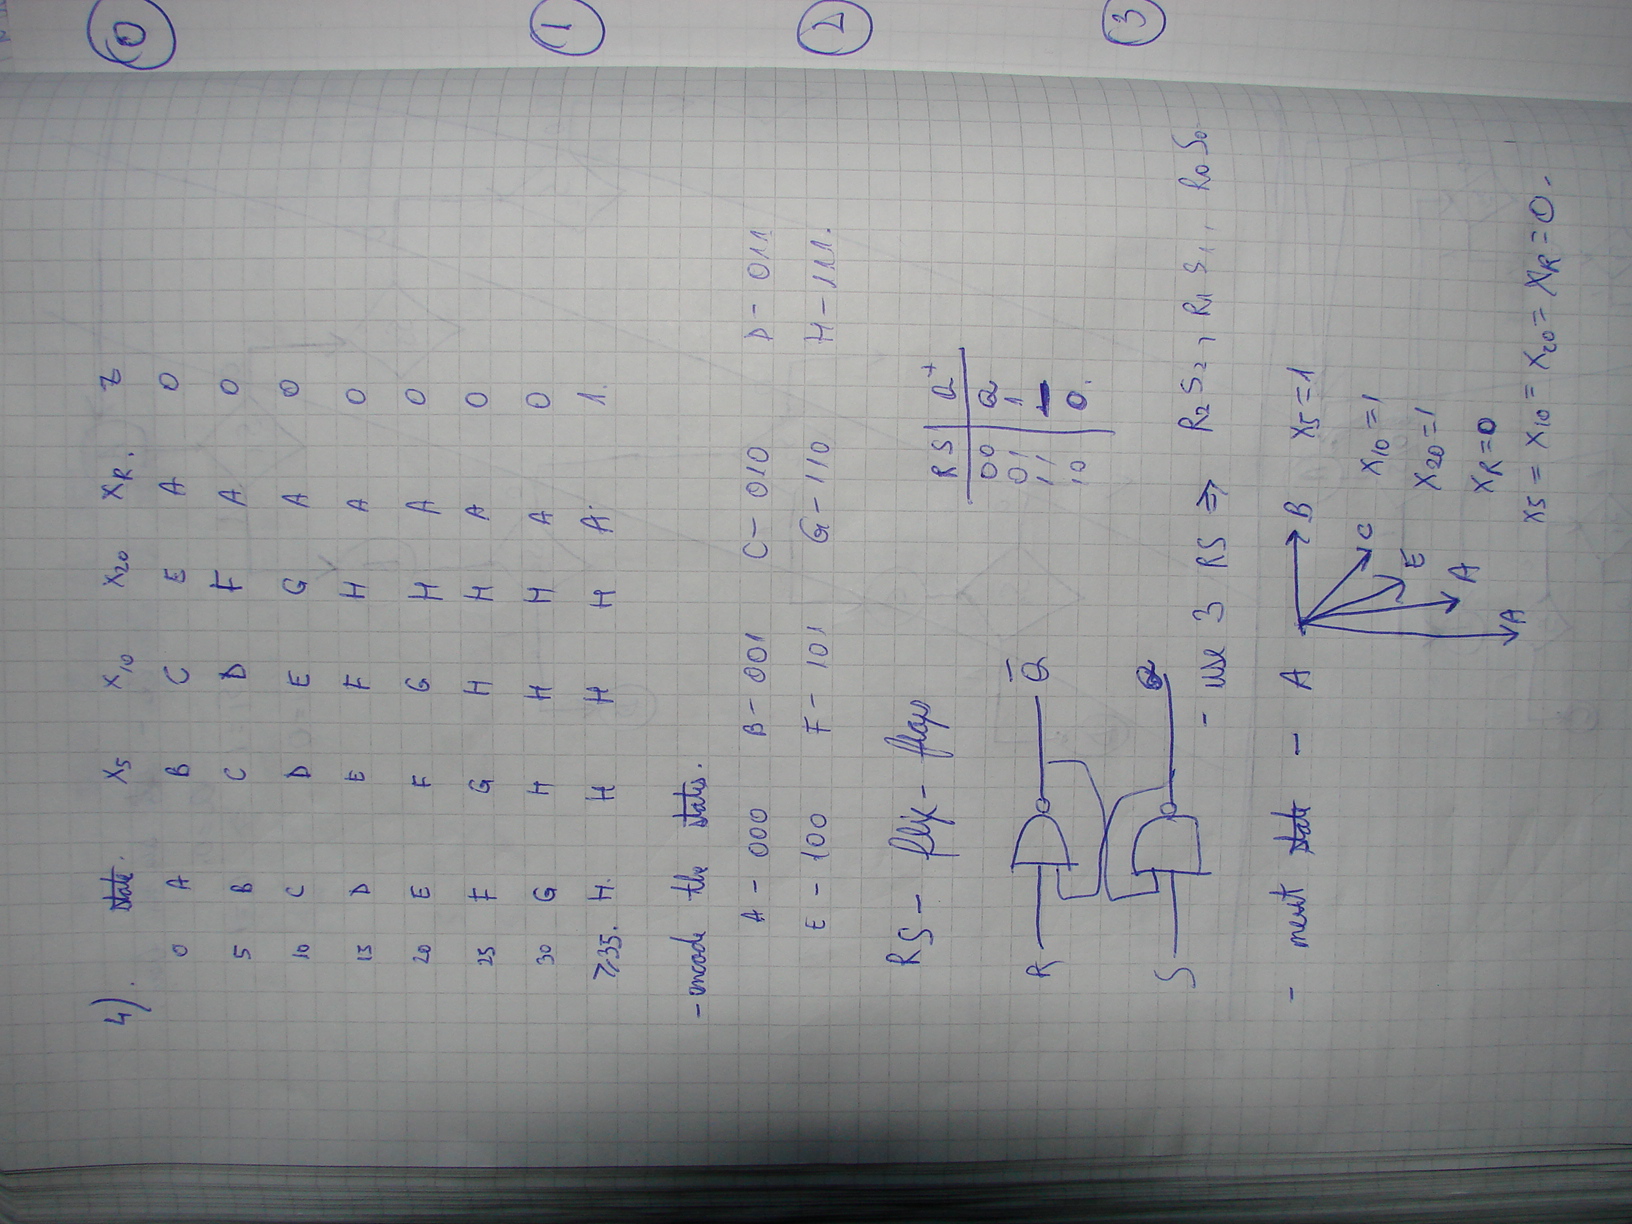 4). state. X5 X10 X20 XR. z
0 A B C E A 0
5 B C D F A 0
10 C D E G A 0
15 D E F H A 0
20 E F G H A 0
25 F G H H A 0
30 G H H H A 0
≥35. H. H H H A. 1.
- encode the states.
A - 000 B - 001 C - 010 D - 011
E - 100 F - 101 G - 110 H - 111.
RS - flip - flops
R S Q+
00 Q
01 1
11
10 0.
R Q̅
S Q
- use 3 RS ⇒ R2 S2, R1 S1, R0 S0
- next state - A B X5=1
C X10=1
E X20=1
A XR=0
A X5 = X10 = X20 = XR = 0.
0
1
2
3